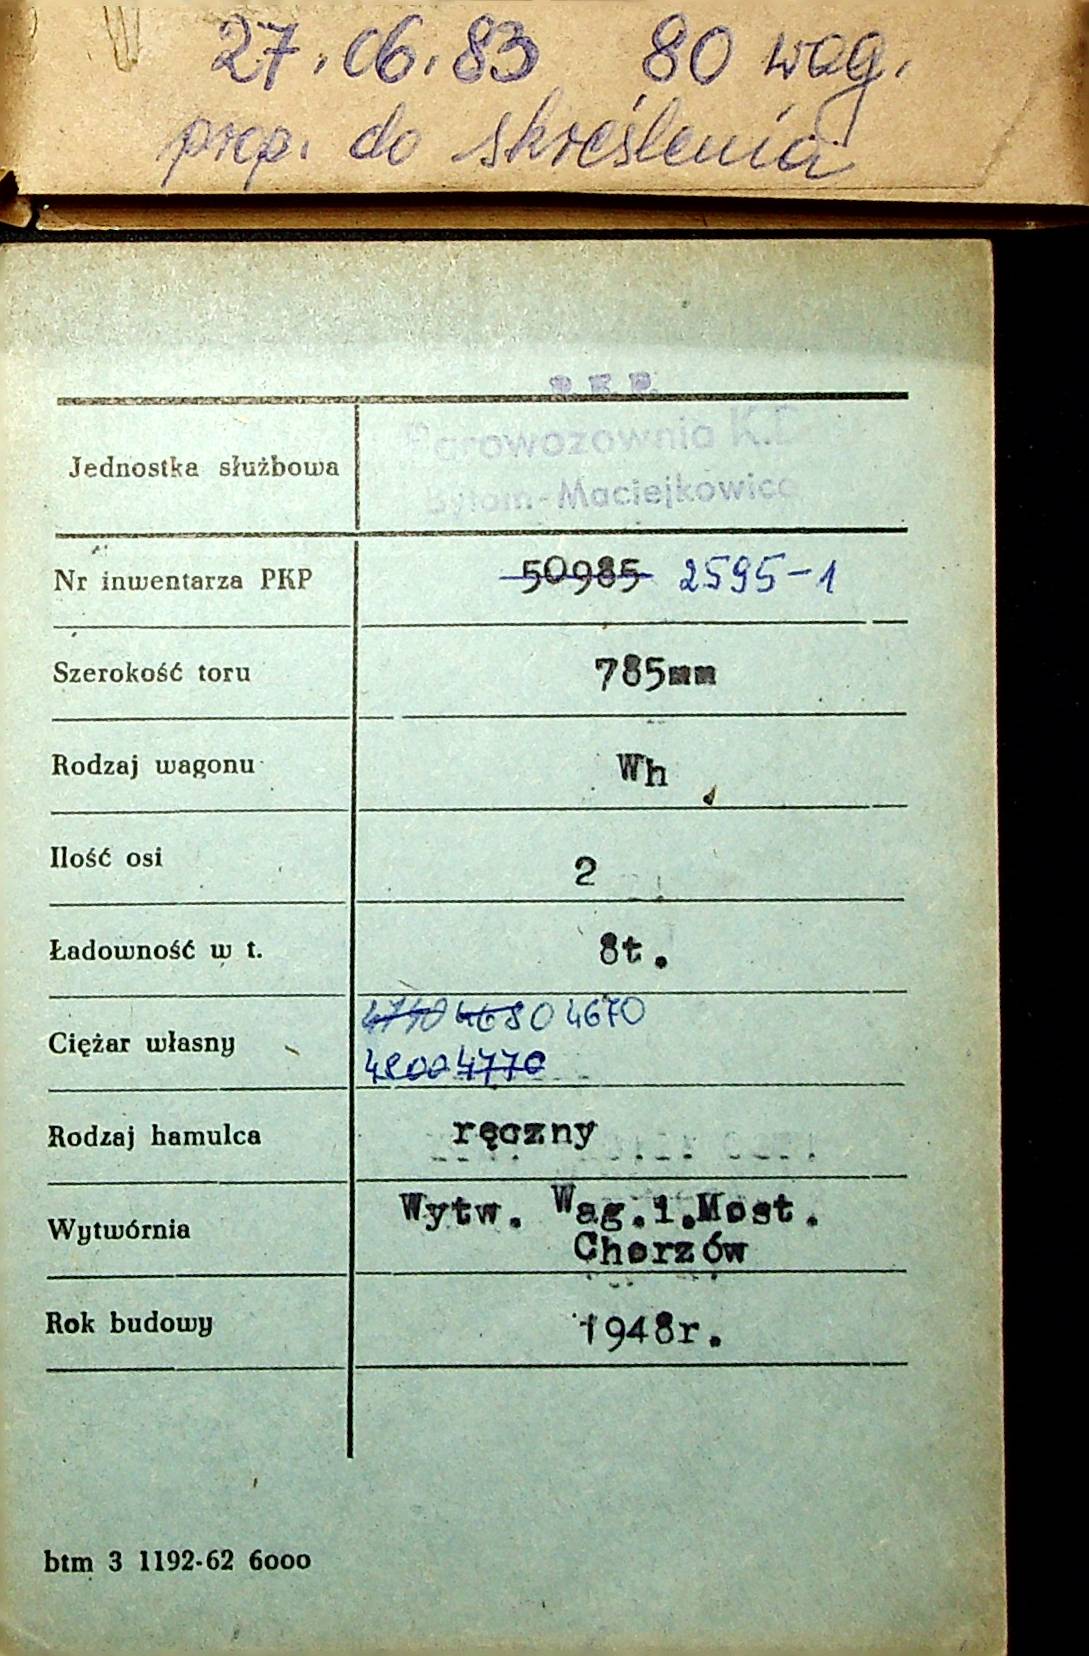 27.06.83 80 wag.
prop. do skreślenia
P.K.P.
Jednostka służbowa Parowozownia K.D
Bytom-Maciejkowice
Nr inwentarza PKP 50985 2595-1
Szerokość toru 785mm
Rodzaj wagonu Wh
Ilość osi 2
Ładowność w t. 8t.
4740 4680 4670
Ciężar własny
4800 4770
Rodzaj hamulca ręczny
Wytwórnia Wytw. Wag.i.Most.
Chorzów
Rok budowy 1948r.
btm 3 1192-62 6000